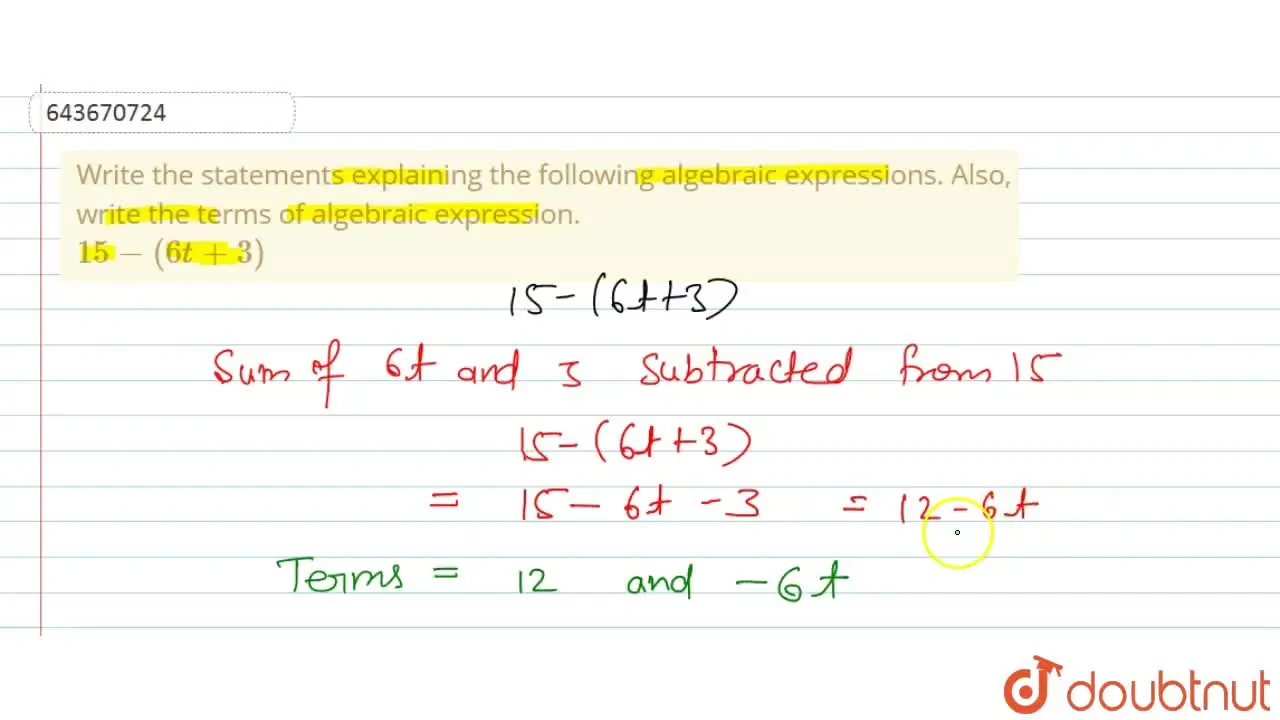 643670724
Write the statements explaining the following algebraic expressions. Also,
write the terms of algebraic expression.
15 − (6t + 3)
15-(6t+3)
Sum of 6t and 3 subtracted from 15
15-(6t+3)
= 15 - 6t - 3 = 12 - 6t
Terms = 12 and -6t
doubtnut